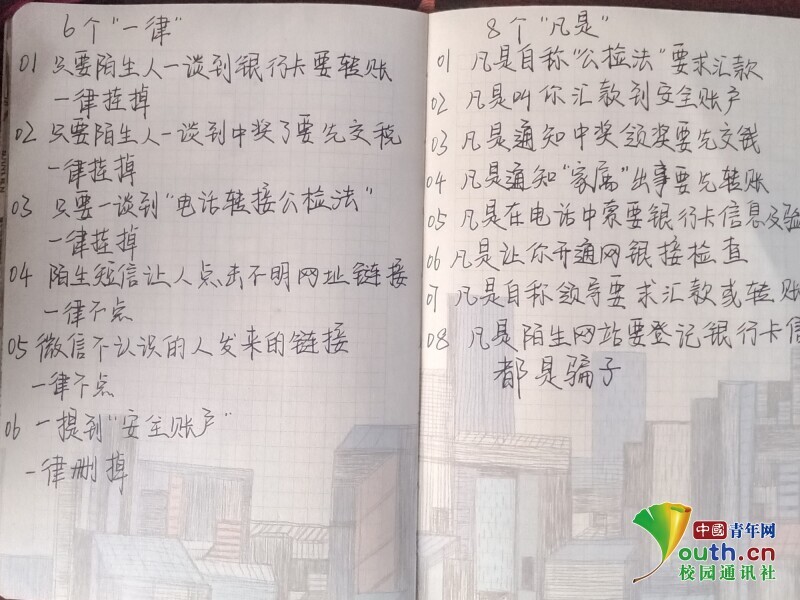 6个"一律"
01 只要陌生人一谈到银行卡要转账
一律挂掉
02 只要陌生人一谈到中奖了要先交税
一律挂掉
03 只要一谈到"电话转接公检法"
一律挂掉
04 陌生短信让人点击不明网址链接
一律不点
05 微信不认识的人发来的链接
一律不点
06 一提到"安全账户"
一律删掉
8个"凡是"
01 凡是自称"公检法"要求汇款
02 凡是叫你汇款到安全账户
03 凡是通知中奖领奖要先交钱
04 凡是通知"家属"出事要先转账
05 凡是在电话中索要银行卡信息及验
06 凡是让你开通网银接检查
07 凡是自称领导要求汇款或转账
08 凡是陌生网站要登记银行卡信
都是骗子
中國青年网
Youth.cn
校园通讯社